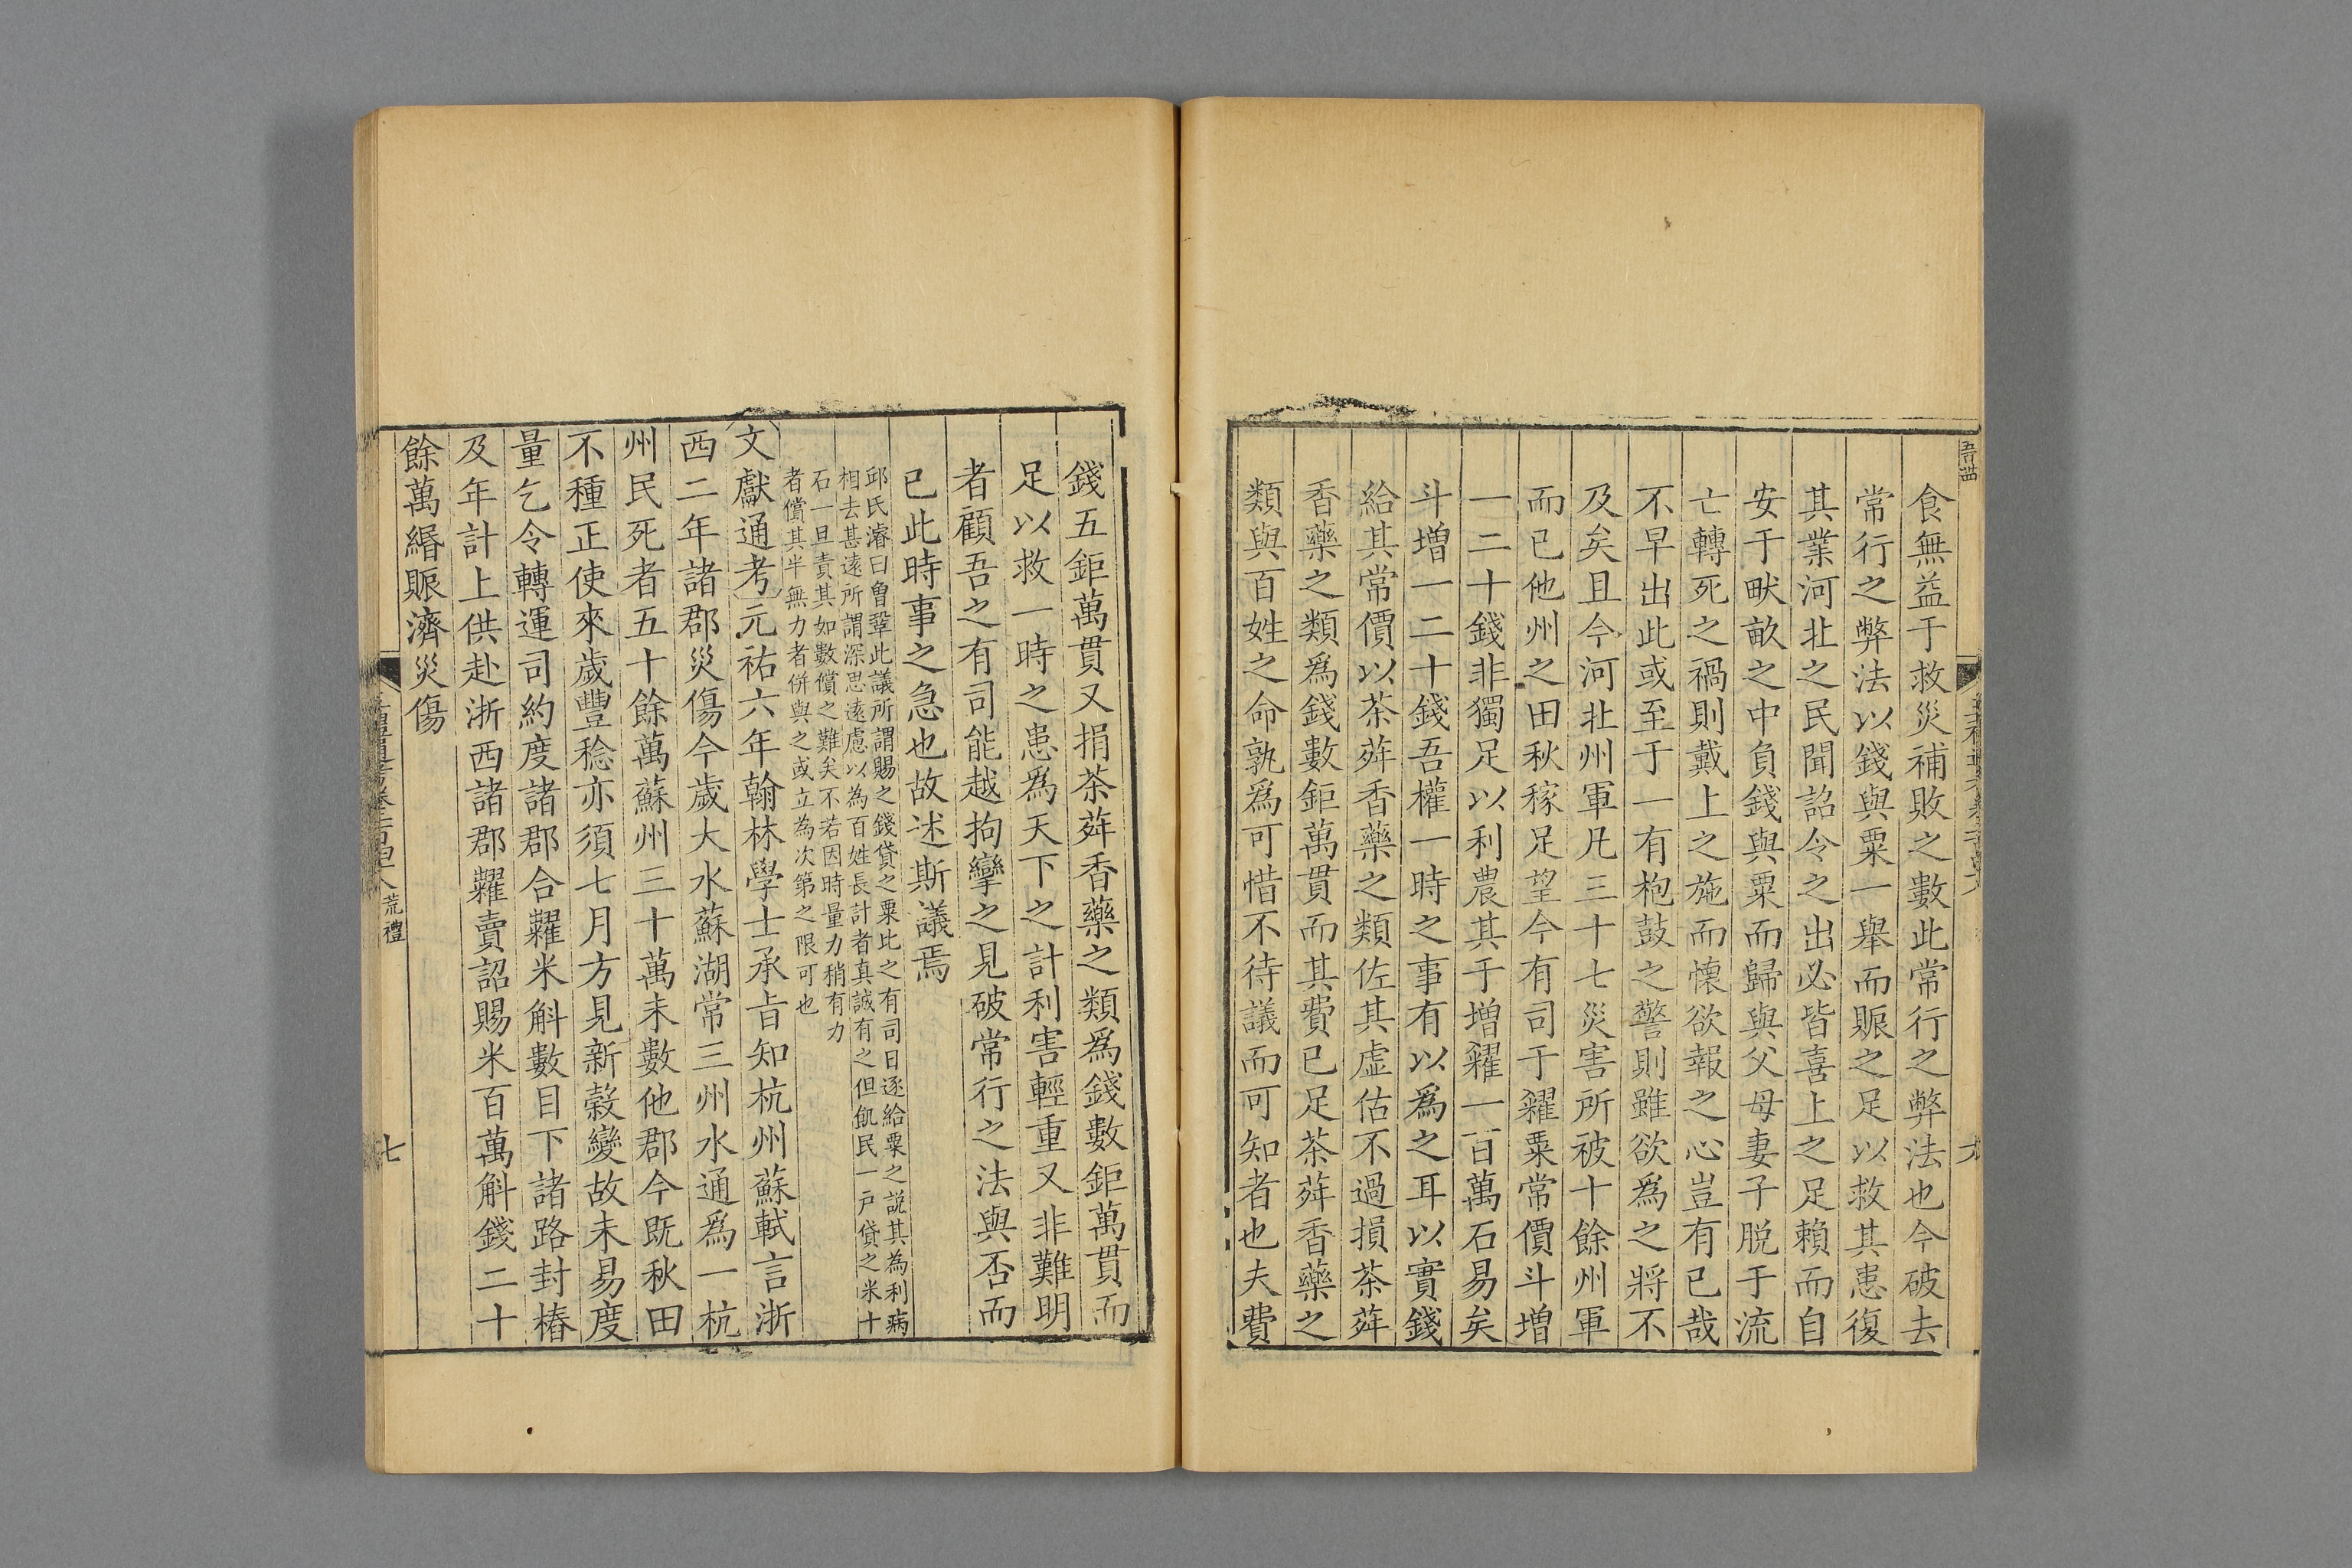 食無益于救災補敗之數此常行之弊法也今破去
常行之弊法以錢與粟一舉而賑之足以救其患復
其業河北之民聞詔令之出必皆喜上之足賴而自
安于畎畝之中負錢與粟而歸與父母妻子脱于流
亡轉死之禍則戴上之施而懷欲報之心豈有已哉
不早出此或至于一有枹鼓之警則雖欲爲之將不
及矣且今河北州軍凡三十七災害所被十餘州軍
而已他州之田秋稼足望今有司于糴粟常價斗増
一二十錢非獨足以利農其于増糴一百萬石易矣
斗増一二十錢吾權一時之事有以爲之耳以實錢
給其常價以茶荈香藥之類佐其虛估不過損茶荈
香藥之類爲錢數鉅萬貫而其費已足茶荈香藥之
類與百姓之命孰爲可惜不待議而可知者也夫費
錢五鉅萬貫又捐茶荈香藥之類爲錢數鉅萬貫而
足以救一時之患爲天下之計利害輕重又非難明
者顧吾之有司能越拘攣之見破常行之法與否而
已此時事之急也故述斯議焉
邱氏濬曰曾鞏此議所謂賜之錢貸之粟比之有司日逐給粟之説其為利病
相去甚逺所謂深思逺慮以為百姓長計者真誠有之但飢民一戸貸之米十
石一旦責其如數償之難矣不若因時量力稍有力
者償其半無力者併與之或立為次第之限可也
文獻通考元祐六年翰林學士承旨知杭州蘇軾言浙
西二年諸郡災傷今歲大水蘇湖常三州水通爲一杭
州民死者五十餘萬蘇州三十萬未數他郡今既秋田
不種正使來歲豐稔亦須七月方見新榖變故未易度
量乞令轉運司約度諸郡合糴米斛數目下諸路封樁
及年計上供赴浙西諸郡糶賣詔賜米百萬斛錢二十
餘萬緡賑濟災傷
荒禮
七